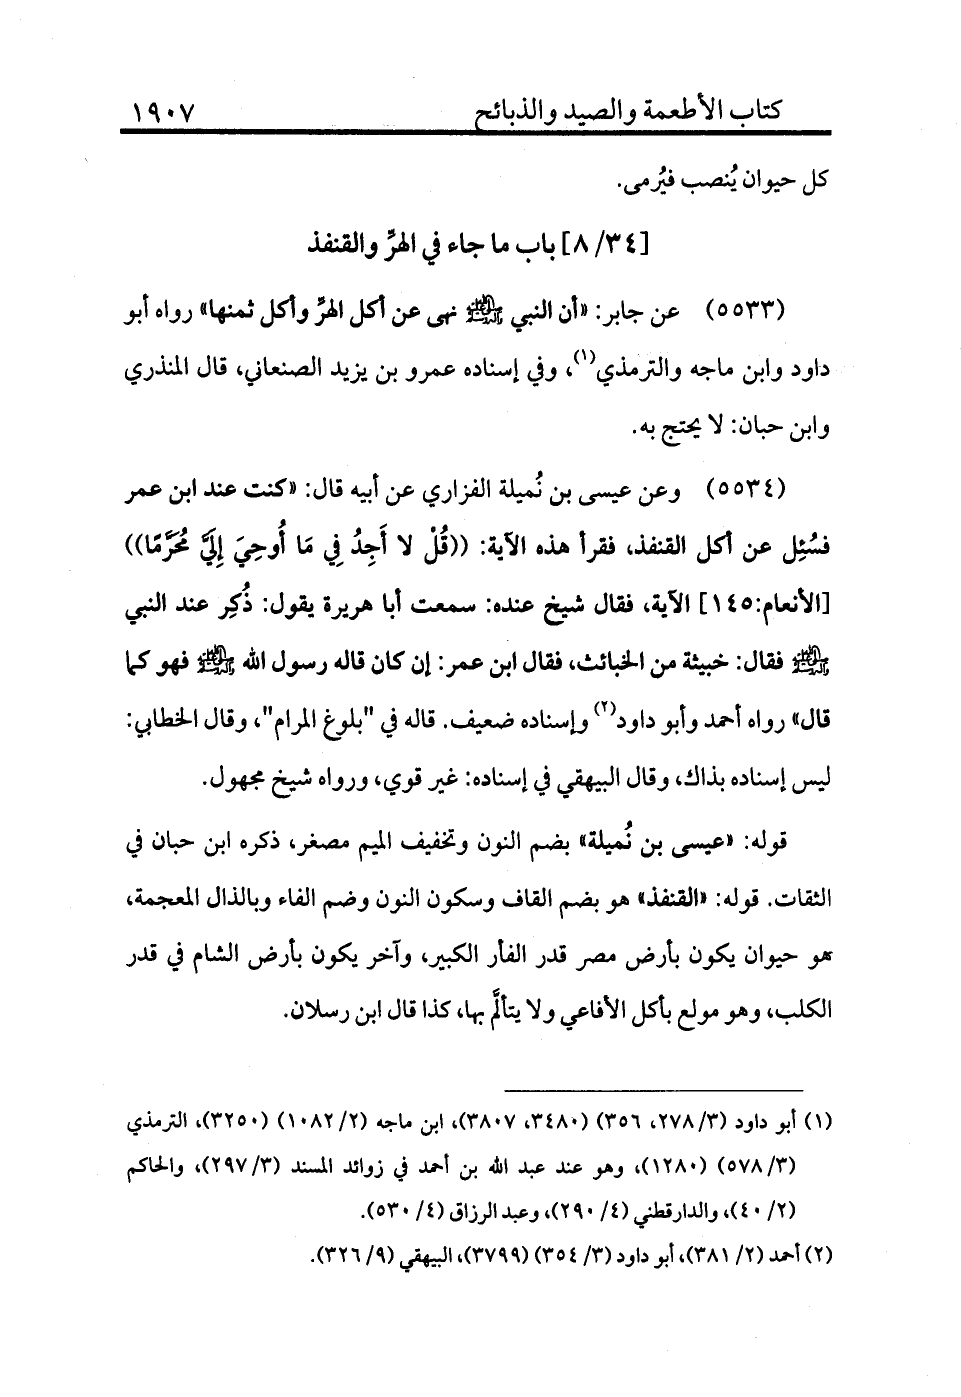 كتاب الأطعمة والصيد والذبائح ١٩٠٧
كل حيوان يُنصب فيُرمى.
[٨/٣٤] باب ما جاء في الهرِّ والقنفذ
(٥٥٣٣) عن جابر: «أن النبي ﷺ نهى عن أكل الهرِّ وأكل ثمنها» رواه أبو
داود وابن ماجه والترمذي(١)، وفي إسناده عمرو بن يزيد الصنعاني، قال المنذري
وابن حبان: لا يحتج به.
(٥٥٣٤) وعن عيسى بن نُميلة الفزاري عن أبيه قال: «كنت عند ابن عمر
فسُئِل عن أكل القنفذ، فقرأ هذه الآية: ((قُلْ لا أَجِدُ فِي مَا أُوحِيَ إِلَيَّ مُحَرَّمًا))
[الأنعام:١٤٥] الآية، فقال شيخ عنده: سمعت أبا هريرة يقول: ذُكِر عند النبي
ﷺ فقال: خبيثة من الخبائث، فقال ابن عمر: إن كان قاله رسول الله ﷺ فهو كما
قال» رواه أحمد وأبو داود(٢) وإسناده ضعيف. قاله في "بلوغ المرام"، وقال الخطابي:
ليس إسناده بذاك، وقال البيهقي في إسناده: غير قوي، ورواه شيخ مجهول.
قوله: «عيسى بن نُميلة» بضم النون وتخفيف الميم مصغر، ذكره ابن حبان في
الثقات. قوله: «القنفذ» هو بضم القاف وسكون النون وضم الفاء وبالذال المعجمة،
هو حيوان يكون بأرض مصر قدر الفأر الكبير، وآخر يكون بأرض الشام في قدر
الكلب، وهو مولع بأكل الأفاعي ولا يتألَّم بها، كذا قال ابن رسلان.
(١) أبو داود (٣/ ٢٧٨، ٣٥٦) (٣٤٨٠، ٣٨٠٧)، ابن ماجه (٢/ ١٠٨٢) (٣٢٥٠)، الترمذي
(٣/ ٥٧٨) (١٢٨٠)، وهو عند عبد الله بن أحمد في زوائد المسند (٣/ ٢٩٧)، والحاكم
(٢/ ٤٠)، والدارقطني (٤/ ٢٩٠)، وعبد الرزاق (٤/ ٥٣٠).
(٢) أحمد (٢/ ٣٨١)، أبو داود (٣/ ٣٥٤) (٣٧٩٩)، البيهقي (٩/ ٣٢٦).